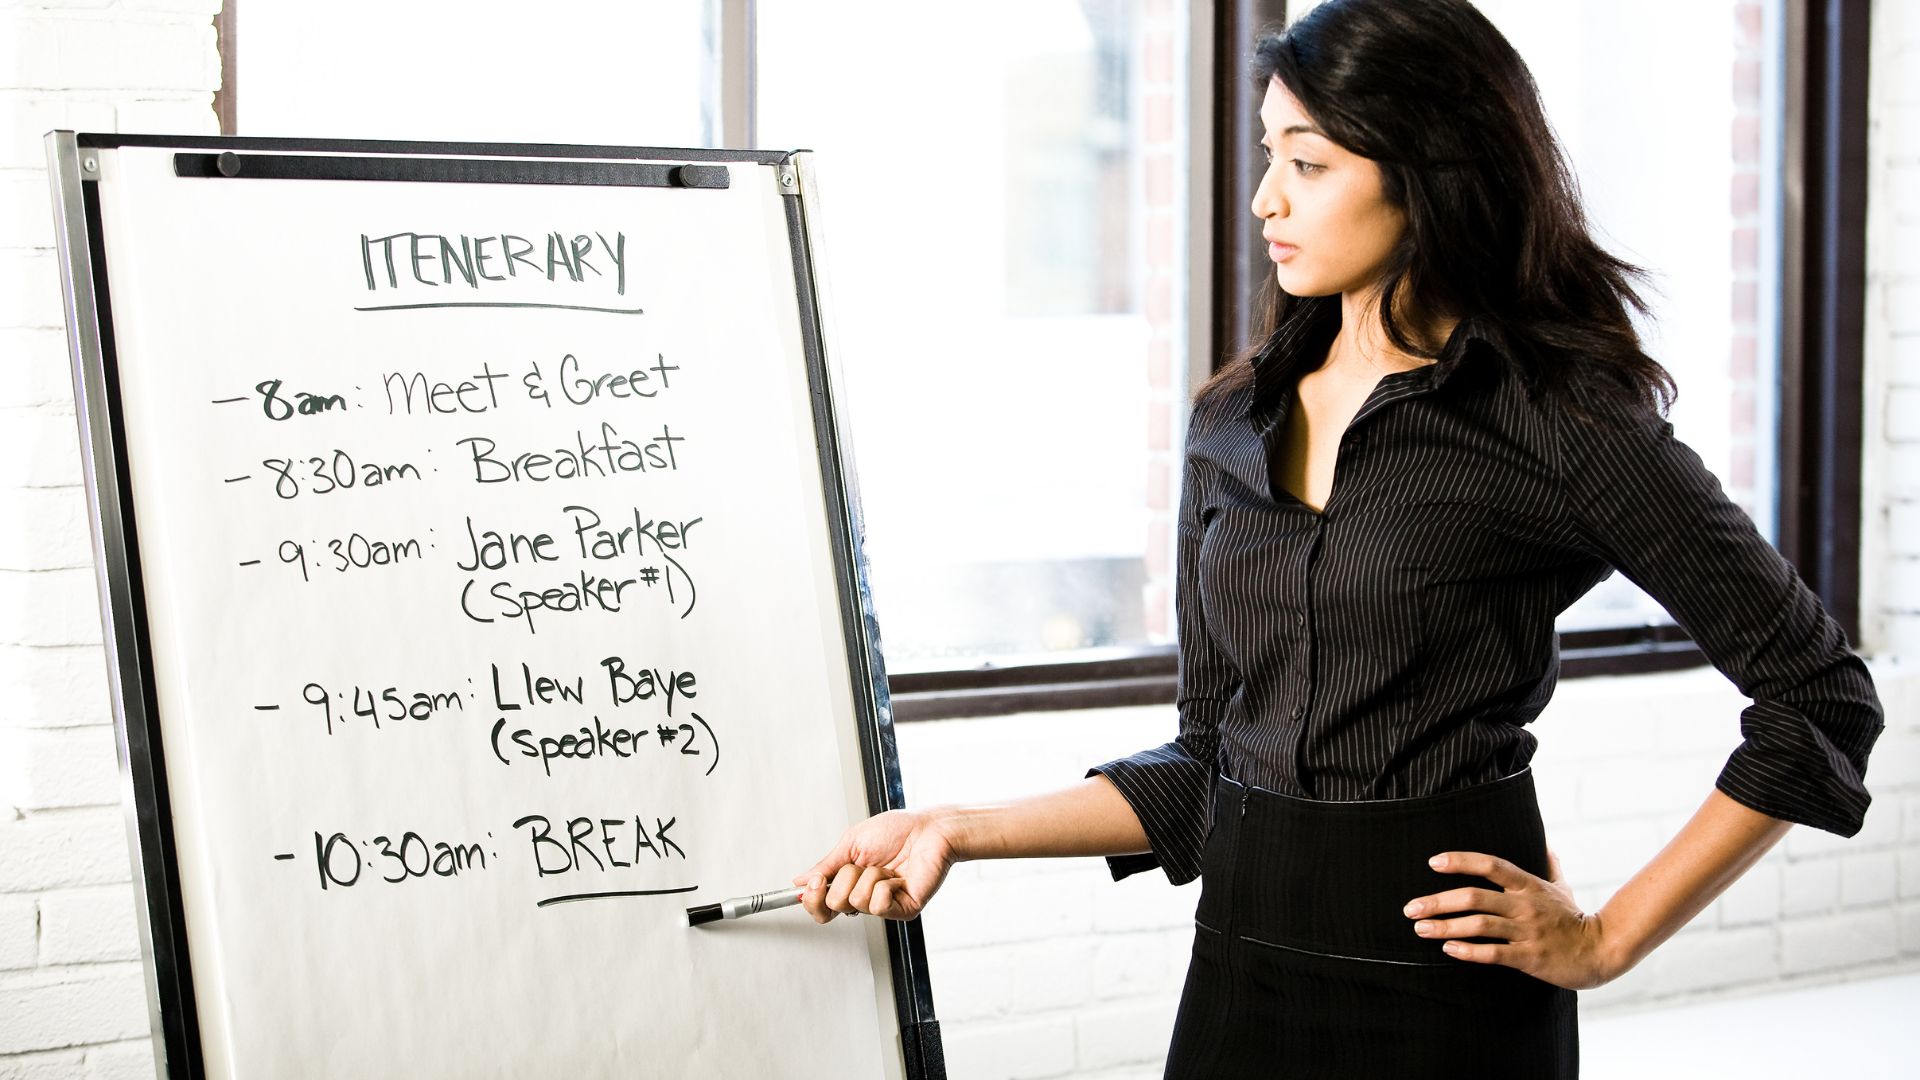 ITENERARY
- 8am: Meet & Greet
- 8:30am: Breakfast
- 9:30am: Jane Parker
(Speaker #1)
- 9:45am: Llew Baye
(Speaker #2)
- 10:30am: BREAK